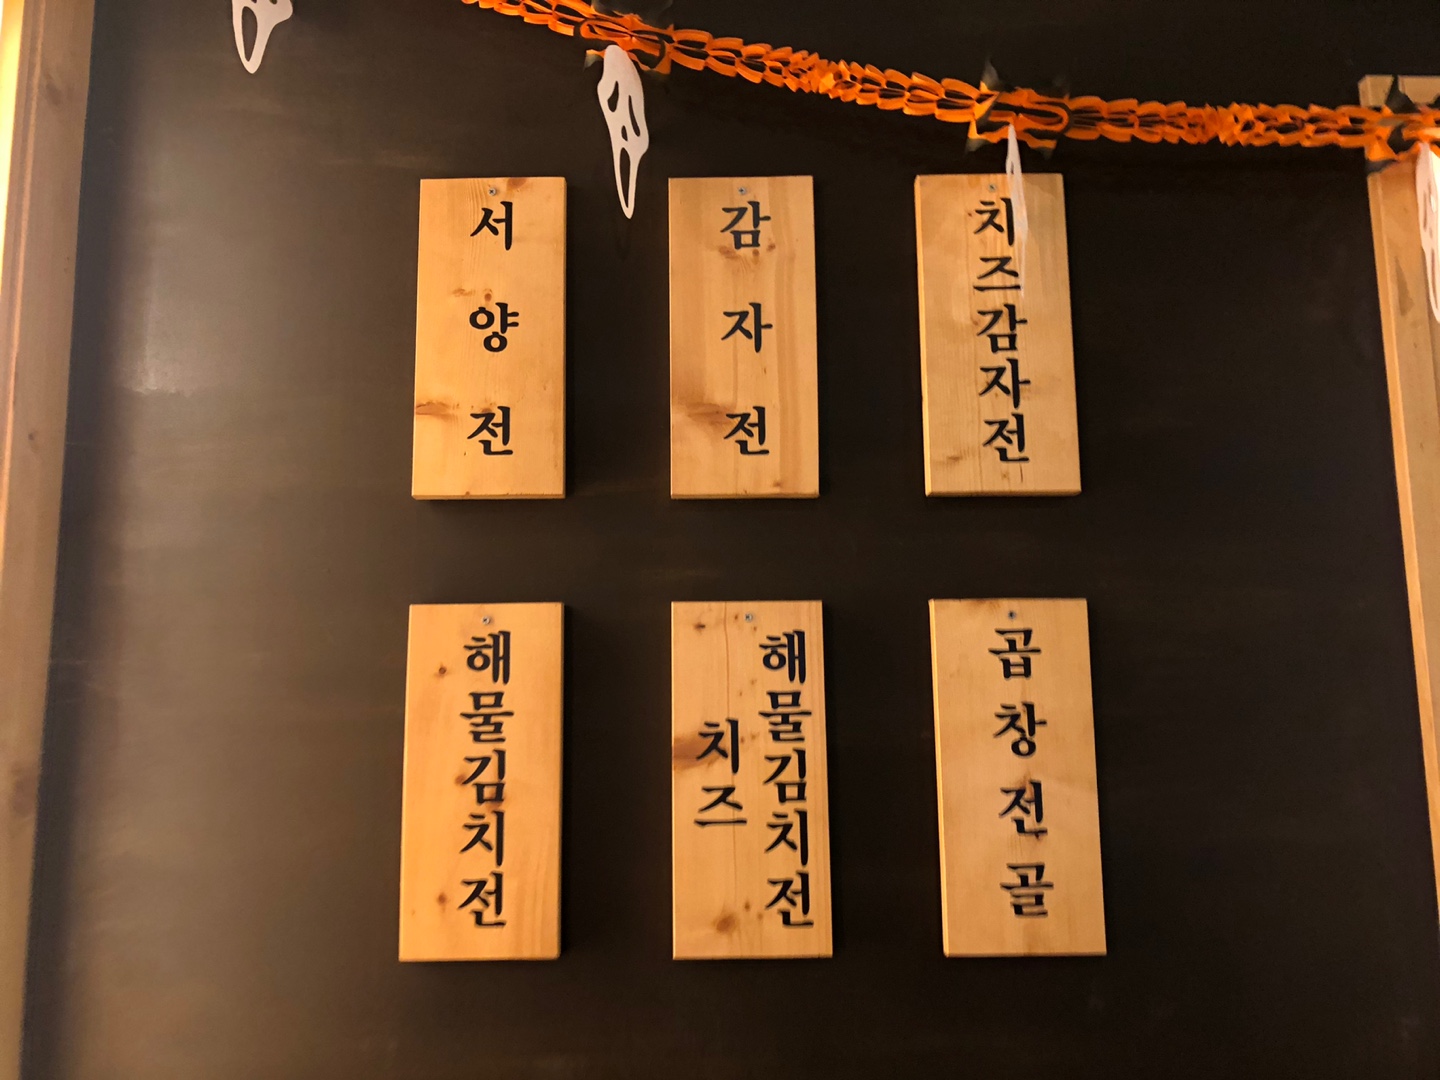 서양전
감자전
치즈감자전
해물김치전
치즈
해물김치전
곱창전골